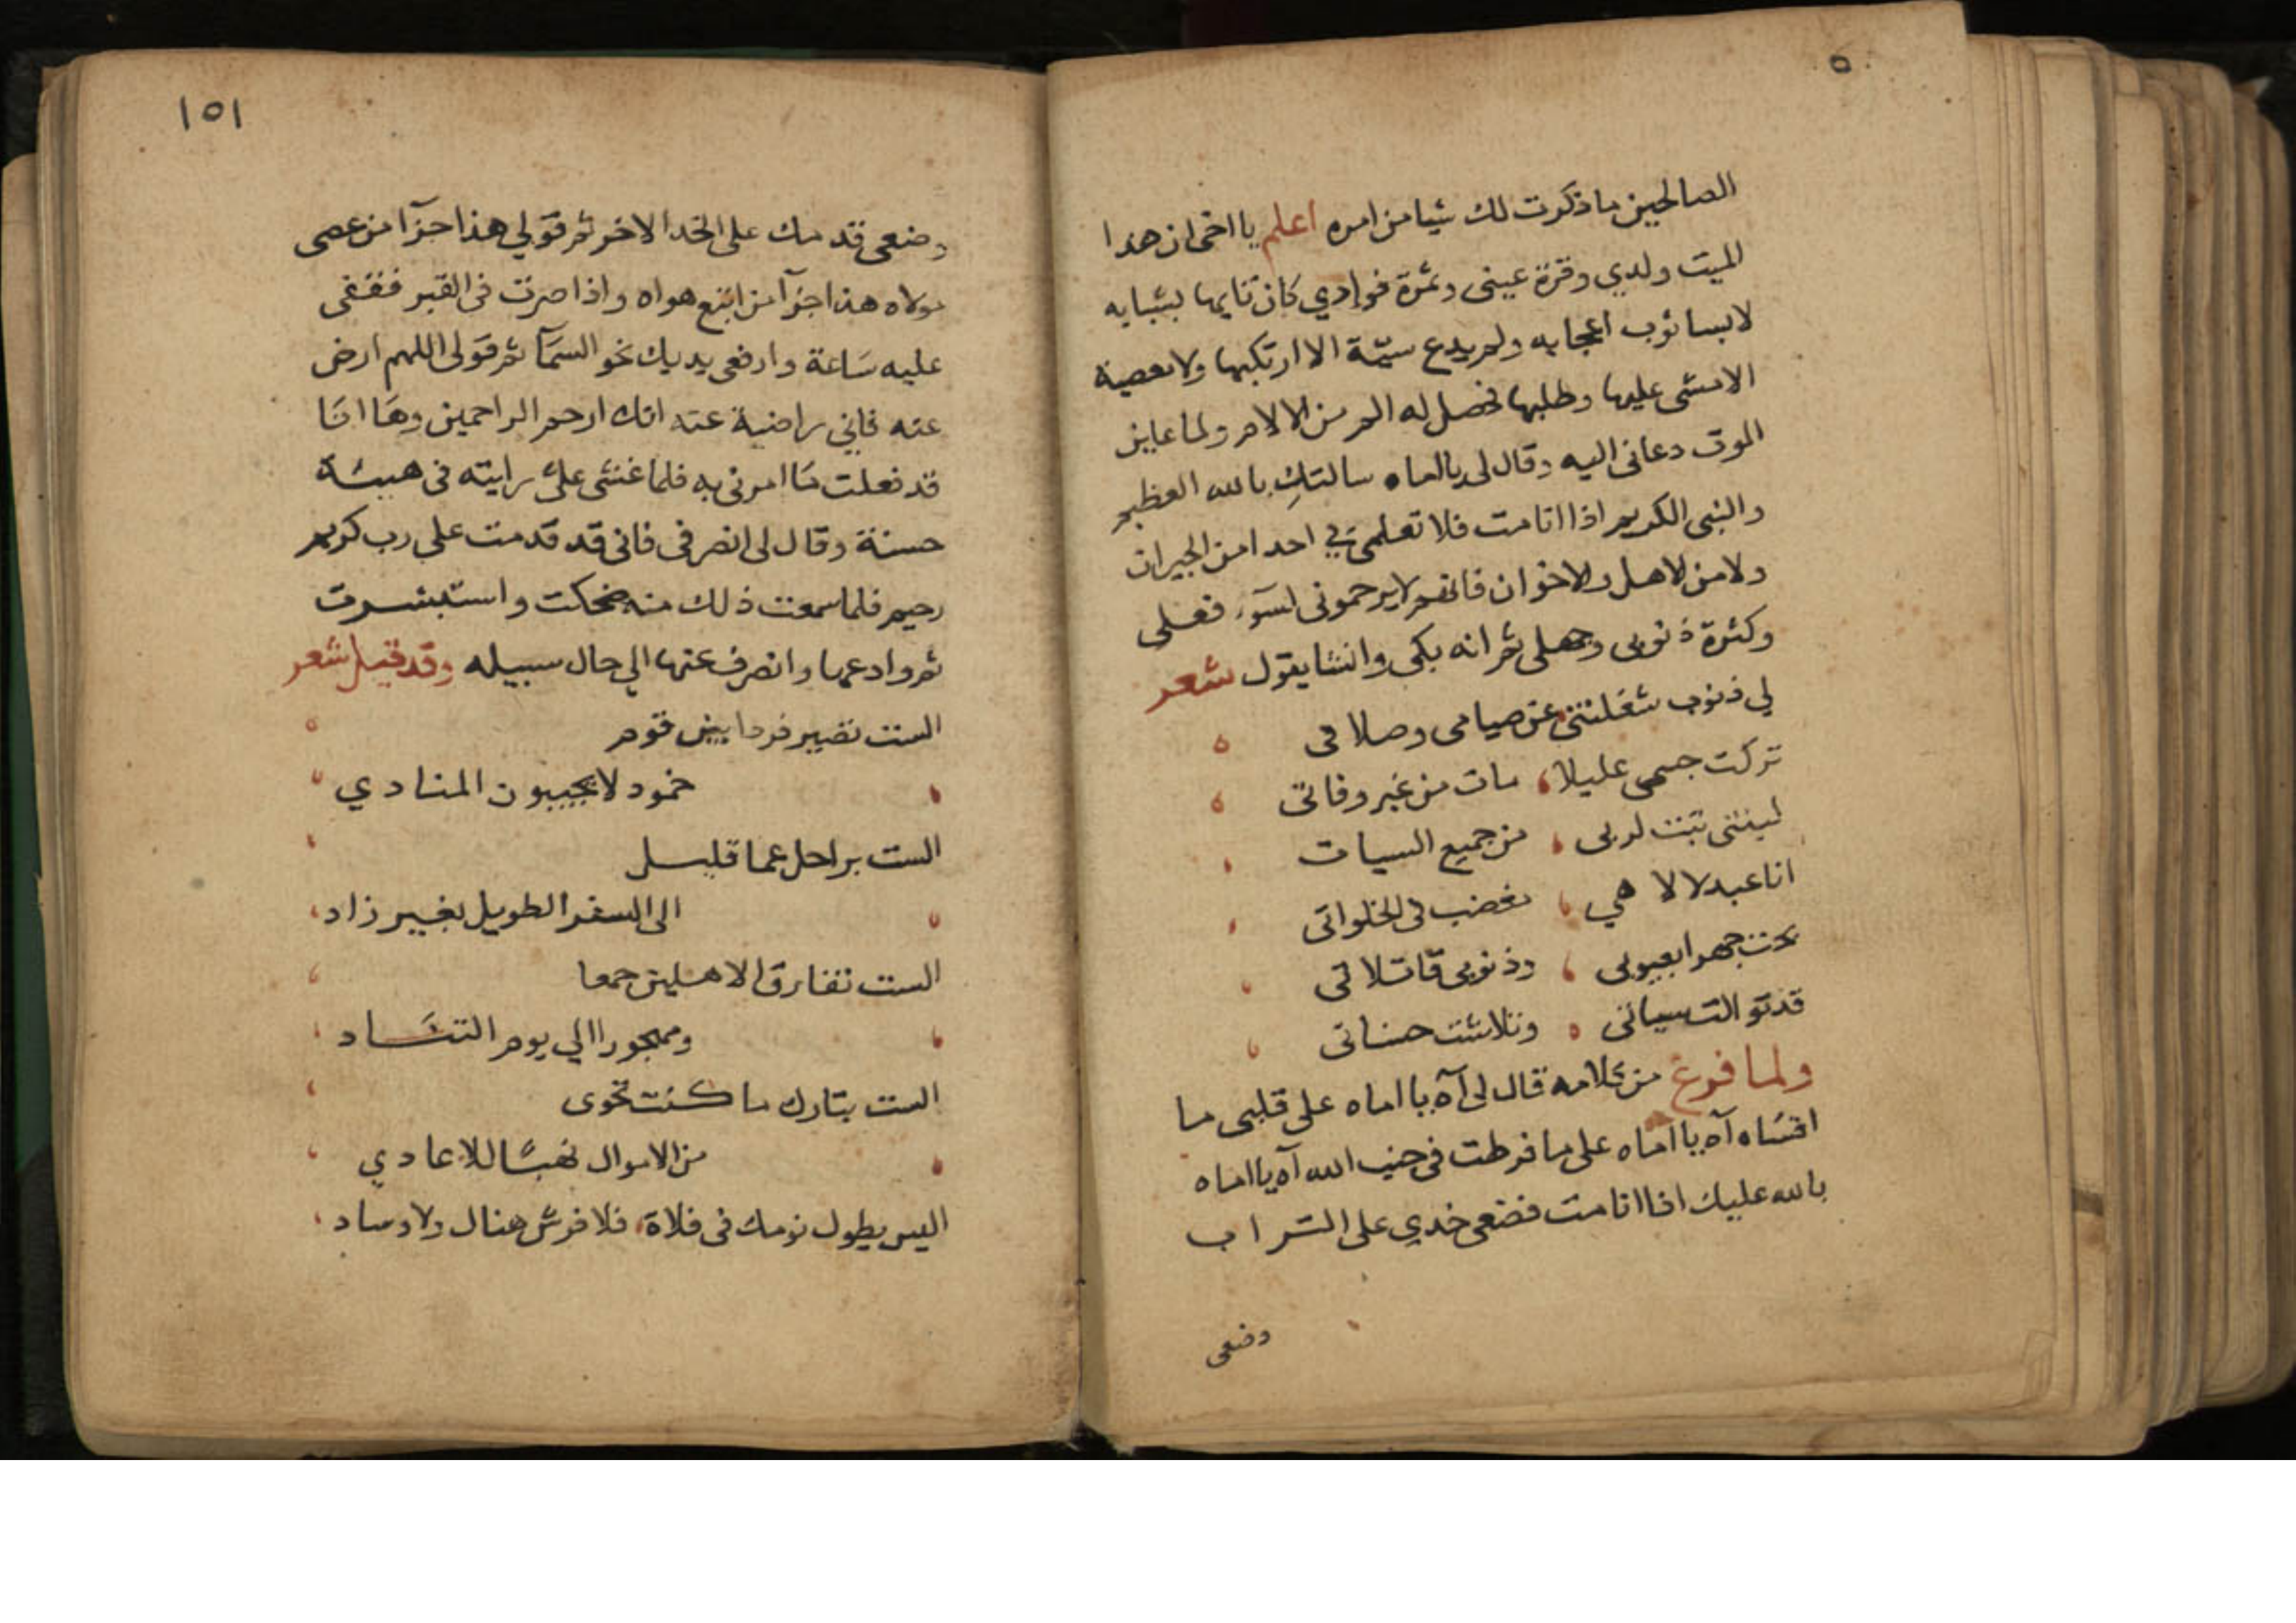 ٥
الصالحين ما ذكرت لك شيا من امره اعلم يا اخى ان هذا
الميت ولدي وقرة عينى وثمرة فوادي كان تايها بشبابه
لابسا ثوب اعجابه ولم يدع سيئة الا ارتكبها ولا معصية
الا مشى عليها وطلبها فحصل له الم من الالام ولما عاين
الموت دعانى اليه وقال لى يا اماه سالتكِ بالله العظيم
والنبى الكريم اذا انا مت فلا تعلمى بى احدا من الجيران
ولا من الاهل والاخوان فانهم لا يرحمونى لسوء فعلى
وكثرة ذنوبى وجهلى ثم انه بكى وانشا يقول شعر
لي ذنوب شغلتنى عن صيامى وصلاتى
تركت جسمى عليلا مات من غير وفاتى
ليتنى تبت لربى من جميع السيات
انا عبد لالاهي مغضب فى الخلواتى
بحت جهرا بعيوبى وذنوبى قاتلاتى
قد توالت سياتى وتلاشت حسناتى
ولما فرغ من كلامه قال لى آه يا اماه على قلبى ما
اقسَاه آه يا اماه على ما فرطت فى جنب الله آه يا اماه
بالله عليك اذا انا مت فضعى خدي على التراب
وضعى
١٥١
وضعى قدمك على الخد الاخر ثم قولي هذا جزآ من عصى
مولاه هذا جزآ من اتبع هواه واذا صرت فى القبر فقفى
عليه سَاعة وارفعى يديك نحو السمَآ ثم قولى اللهم ارض
عنه فانى راضية عنه انك ارحم الراحمين وهَا انَا
قد فعلت مَا امرنى به فلما غشى علىّ رايته فى هيئة
حسنة وقال لى انصرفى فانى قد قدمت على رب كريم
رحيم فلما سمعت ذلك منه ضحكت واستبشرت
ثم وادعها وانصرف عنها الي حال سبيله وقد قيل شعر
الست تصير فردا بين قوم
خمود لا يجيبون المنادي
الست براحل عما قليل
الى السفر الطويل بغير زاد
الست تفارق الاهلين جمعا
ومهجورا الي يوم التنَاد
الست بتارك ما كنت تحوى
من الاموال نهبًا للاعادي
اليس يطول نومك فى فلاة فلا فرش هناك ولا وساد